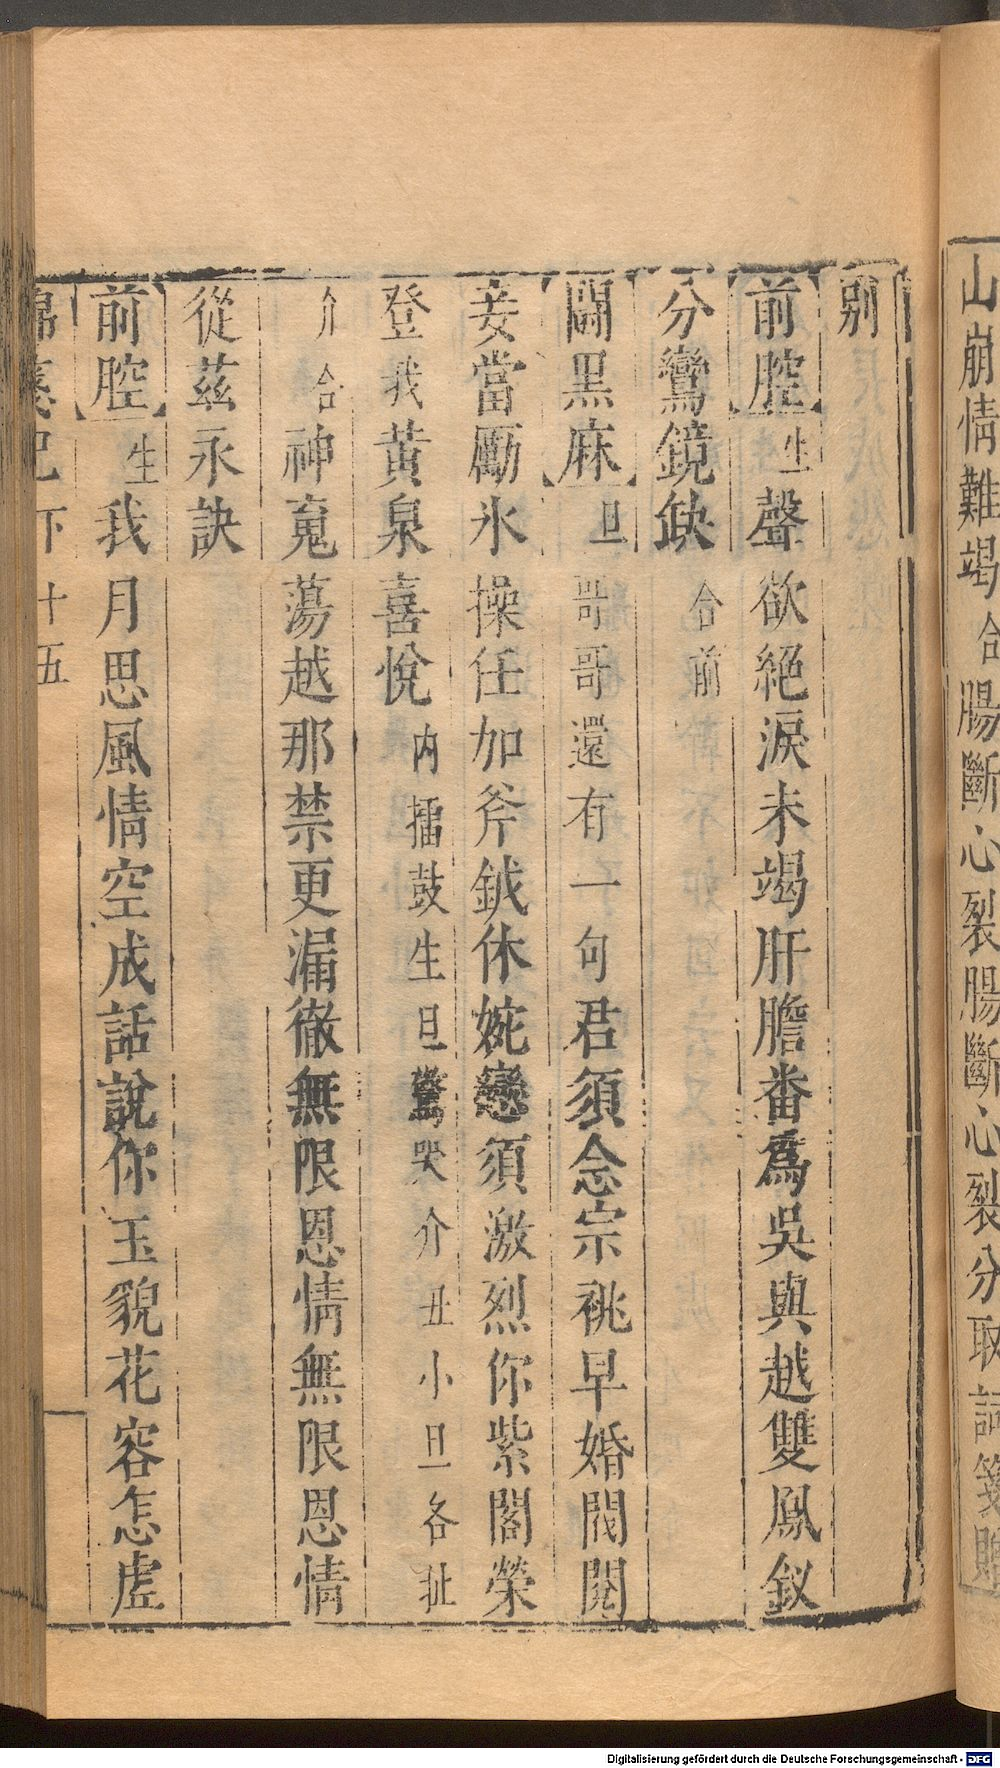 山崩情難竭合腸斷心裂腸斷心裂分取詩箋贈
別
【前腔】生聲欲絕淚未竭肝膽番爲吳與越雙鳳釵
分鸞鏡缺合前
【鬭黑麻】旦哥哥還有一句君須念宗祧早婚閥閱
妾當勵氷操任加斧鉞休婉戀須激烈你紫閣榮
登我黃泉喜悅内擂鼓生旦驚哭介丑小旦各扯
介合神䰟蕩越那禁更漏徹無限恩情無限恩情
從茲永訣
【前腔】生我月思風情空成話說你玉貌花容怎虛
錦箋記下十五
Digitalisierung gefördert durch die Deutsche Forschungsgemeinschaft - DFG